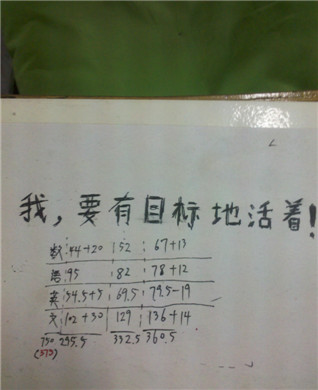 我，要有目标地活着！
数：44+20 52 67+13
语：95 82 78+12
英：54.5+5 69.5 79.5-19
文：102+30 129 136+14
750 295.5 332.5 360.5
(573)